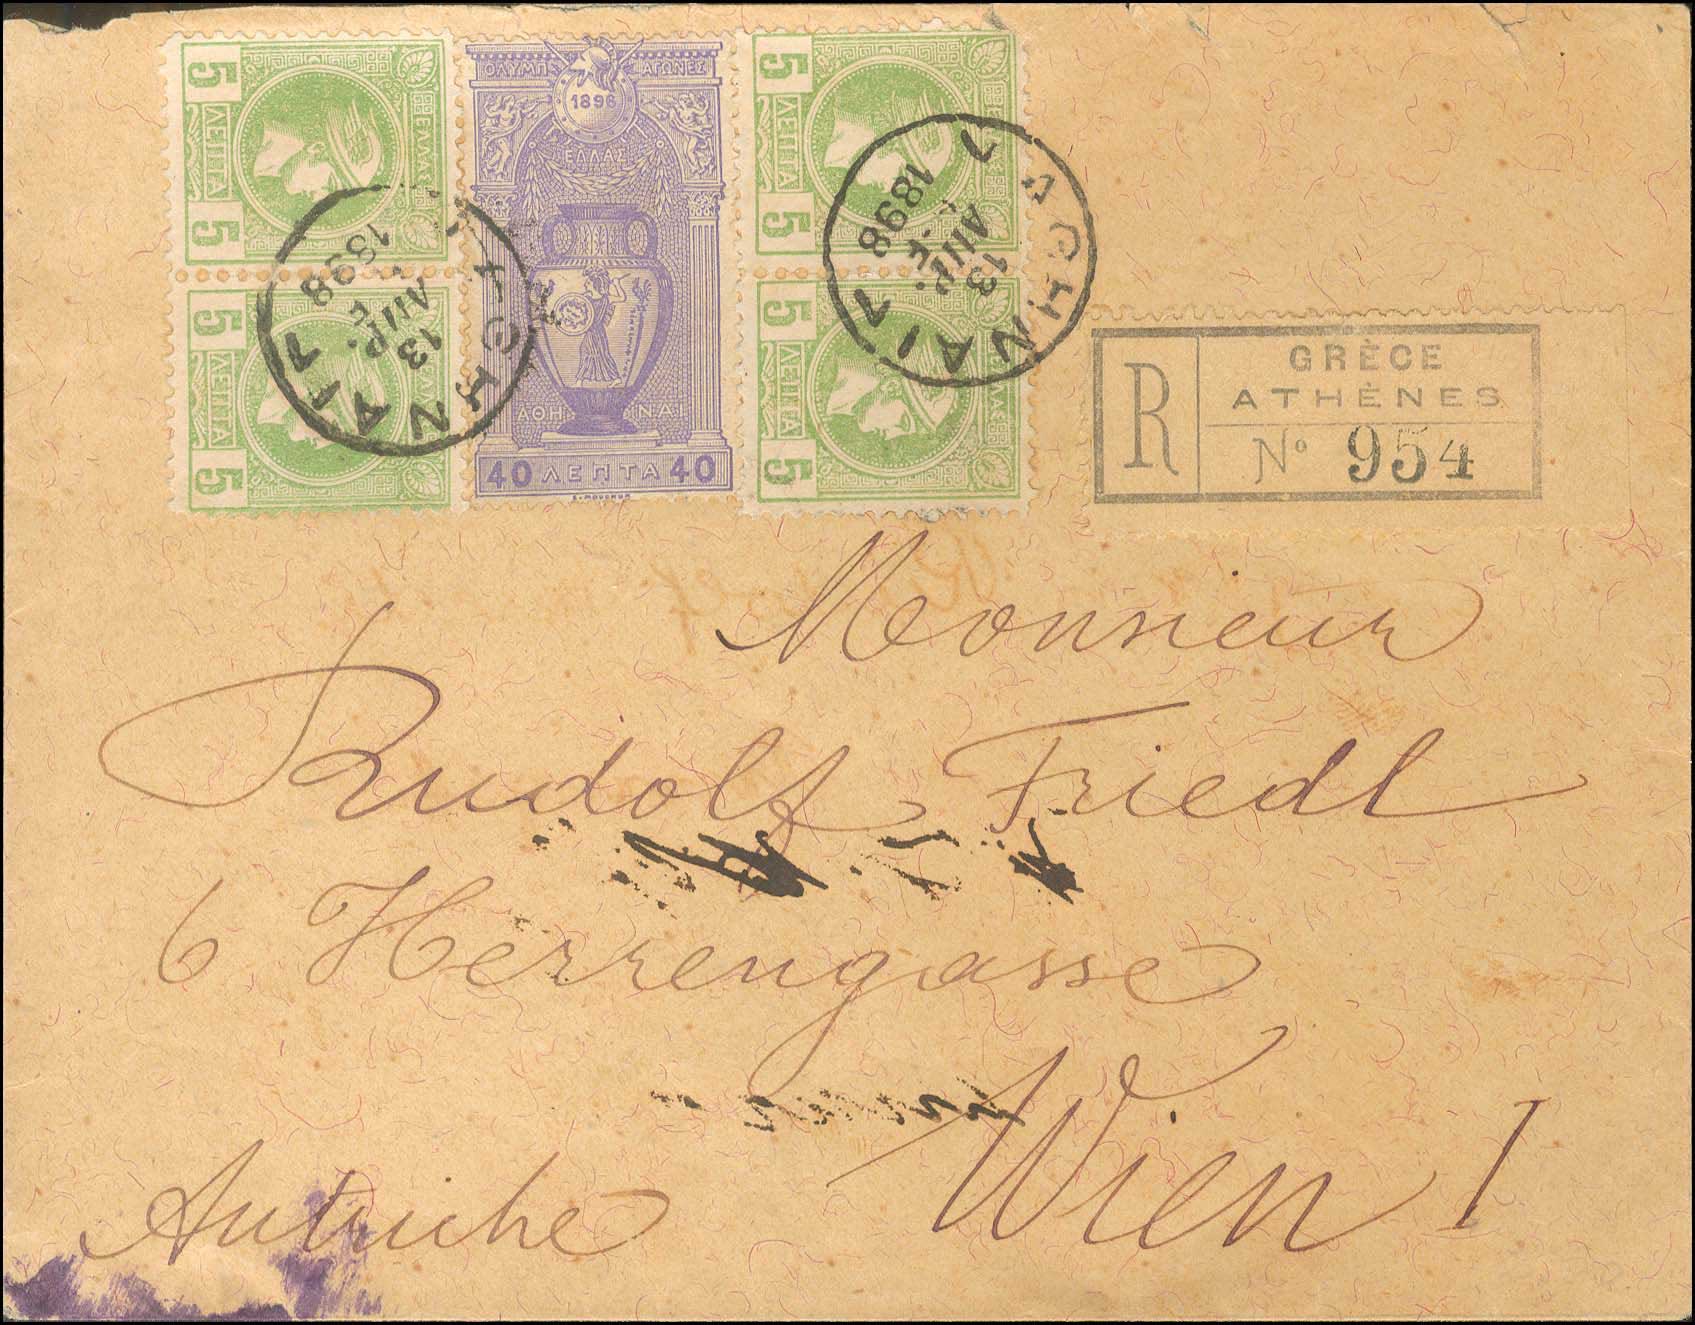 5 ΛΕΠΤΑ 5
ΕΛΛΑΣ
5 ΛΕΠΤΑ 5
ΕΛΛΑΣ
ΟΛΥΜΠ ΑΓΩΝΕΣ
1896
ΕΛΛΑΣ
ΑΘΗ ΝΑΙ
40 ΛΕΠΤΑ 40
E. MOUCHON
5 ΛΕΠΤΑ 5
5 ΛΕΠΤΑ 5
ΑΘΗΝΑΙ 7
13
ΑΠΡ.
1898
7
ΑΘΗΝΑΙ 7
13
ΑΠΡ.
1898
7
R
GRÈCE
ATHÈNES
Nº 954
Monsieur
Rudolf Friedl
6 Herrengasse
Wien I
Autriche